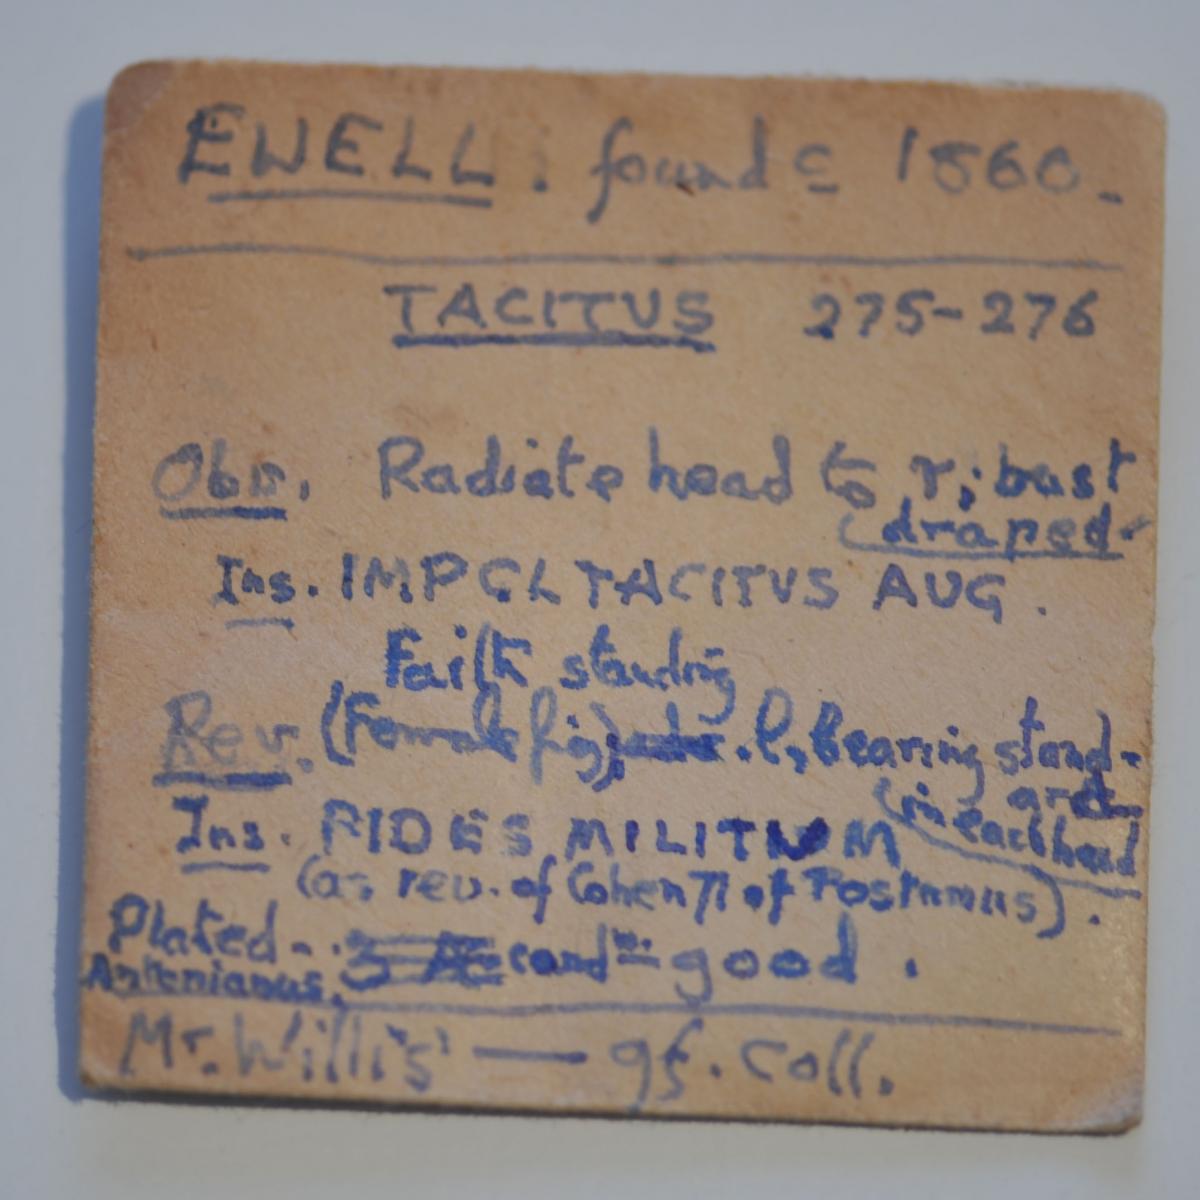 EWELL: found c 1860.
TACITUS 275-276
Obv. Radiate head to r; bust
draped.
Ins. IMP CL TACITUS AUG.
Faith standing
Rev. (Female fig), l, bearing stand-
ard
in each hand
Ins. FIDES MILITUM
(as rev. of Cohen 71 of Postumus).
Plated - condn. - good.
Antonianus.
Mr. Willis' — gf. Coll.